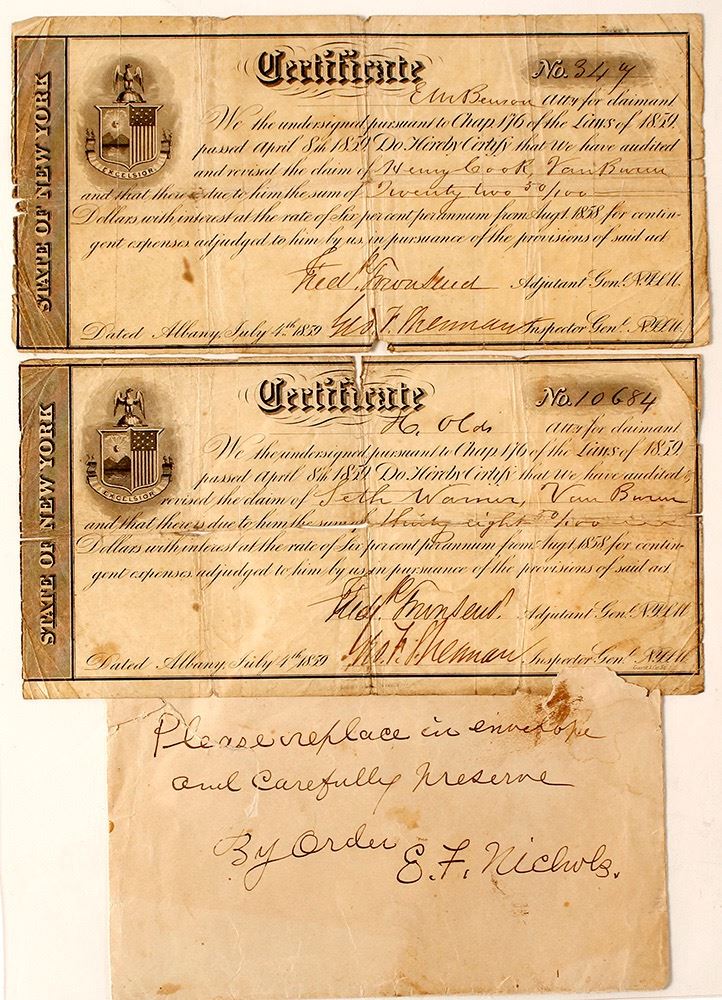 STATE OF NEW YORK
EXCELSIOR
Certificate
No. 347
E M Benson Atty for claimant
We the undersigned pursuant to Chap 176 of the Laws of 1859.
passed April 8th 1859. Do Hereby Certify that We have audited
and revised the claim of Henry Cook, Van Buren
and that there is due to him the sum of Twenty two 50/100
Dollars, with interest at the rate of Six per cent per annum from Augt 1858 for contin-
gent expenses adjudged to him by us, in pursuance of the provisions of said act
Fred. Townsend Adjutant Genl. N.Y.S.M.
Dated Albany, July 4th 1859 Inspector Genl. N.Y.S.M.
STATE OF NEW YORK
EXCELSIOR
Certificate
No. 10684
H. Olds Atty for claimant
We the undersigned pursuant to Chap 176 of the Laws of 1859,
passed April 8th 1859. Do Hereby Certify that We have audited &
revised the claim of Seth Warner, Van Buren
and that there is due to him the sum of thirty eight 50/100
Dollars with interest at the rate of Six per cent per annum from Augt 1858 for contin-
gent expenses adjudged to him by us, in pursuance of the provisions of said act
Fred. Townsend. Adjutant Genl. N.Y.S.M
Dated Albany July 4th 1859 Inspector Genl. N.Y.S.M.
Please replace in envelope
and carefully preserve
By Order E. F. Nichols.